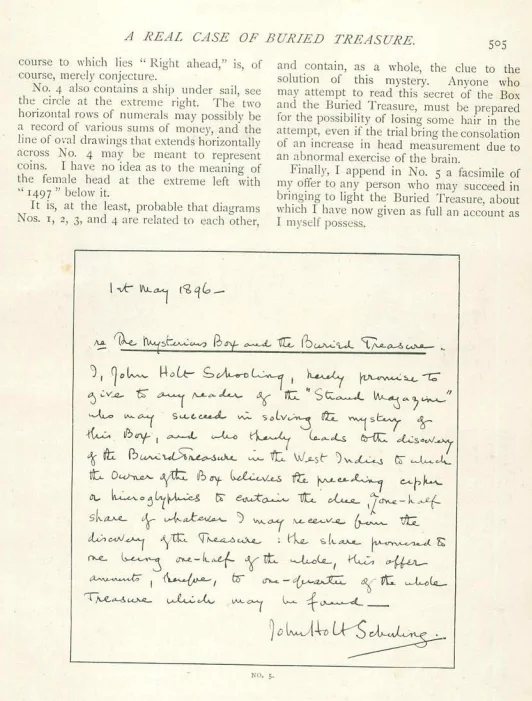 A REAL CASE OF BURIED TREASURE.
505
course to which lies “ Right ahead,” is, of
course, merely conjecture.
No. 4 also contains a ship under sail, see
the circle at the extreme right. The two
horizontal rows of numerals may possibly be
a record of various sums of money, and the
line of oval drawings that extends horizontally
across No. 4 may be meant to represent
coins. I have no idea as to the meaning of
the female head at the extreme left with
“ 1497 ” below it.
It is, at the least, probable that diagrams
Nos. 1, 2, 3, and 4 are related to each other,
and contain, as a whole, the clue to the
solution of this mystery. Anyone who
may attempt to read this secret of the Box
and the Buried Treasure, must be prepared
for the possibility of losing some hair in the
attempt, even if the trial bring the consolation
of an increase in head measurement due to
an abnormal exercise of the brain.
Finally, I append in No. 5 a facsimile of
my offer to any person who may succeed in
bringing to light the Buried Treasure, about
which I have now given as full an account as
I myself possess.
1st May 1896—
re The Mysterious Box and the Buried Treasure.
I, John Holt Schooling, hereby promise to
give to any reader of the "Strand Magazine"
who may succeed in solving the mystery of
this Box, and who thereby leads to the discovery
of the Buried Treasure in the West Indies to which
the Owner of the Box believes the preceding cipher
or hieroglyphics to contain the clue, one-half
share of whatever I may receive from the
discovery of the Treasure : the share promised to
me being one-half of the whole, this offer
amounts, therefore, to one-quarter of the whole
Treasure which may be found—
John Holt Schooling.
NO. 5.